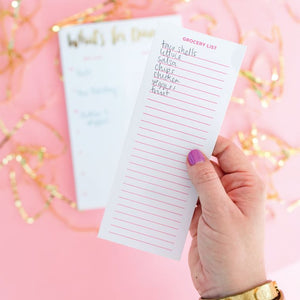 What's for Din
GROCERY LIST
taco shells
lettuce
salsa
chips
chicken
pepper